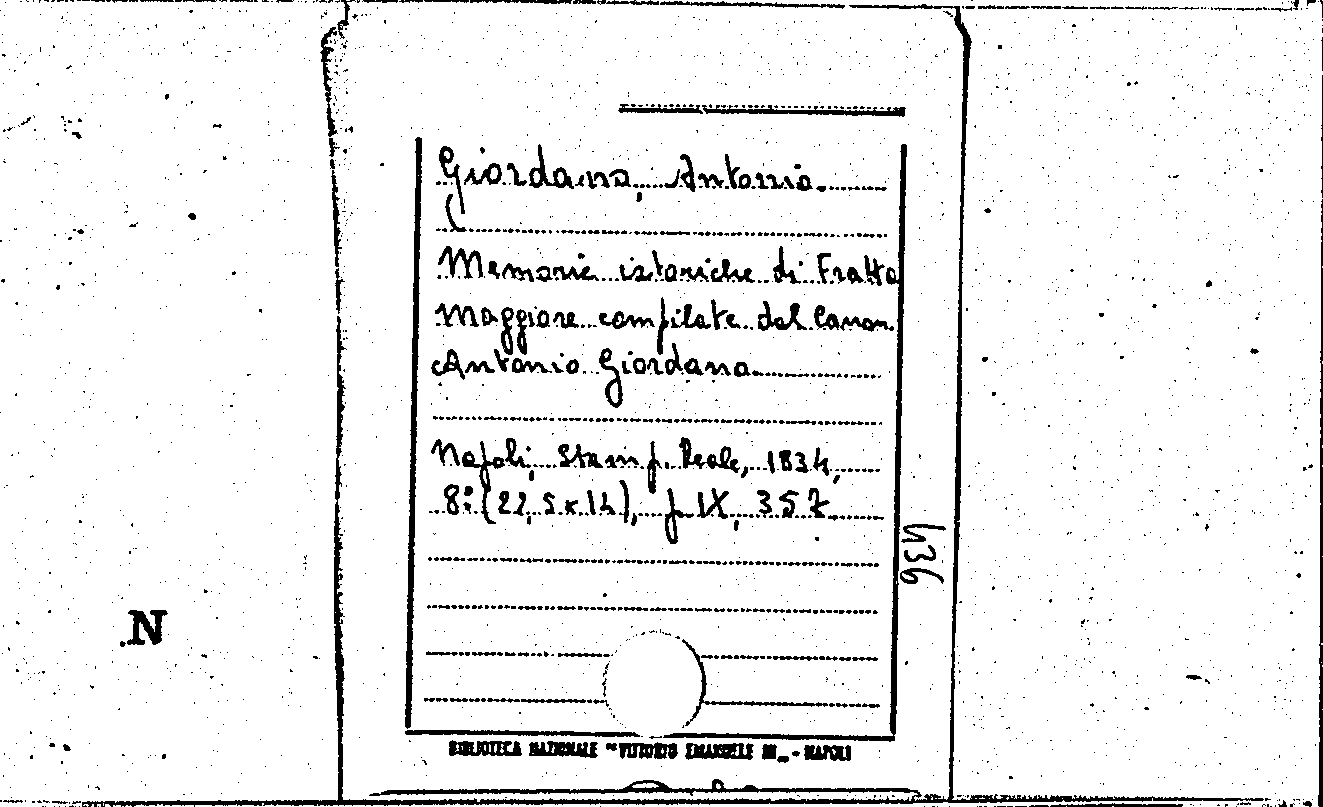 Giordano, Antonio.
Memorie istoriche di Fratta
Maggiore compilate dal Canon.
Antonio Giordano
Napoli, Stamp. Reale, 1834,
8° (22,5 x 14), p. IX, 357
436
N
BIBLIOTECA NAZIONALE "VITTORIO EMANUELE III" - NAPOLI